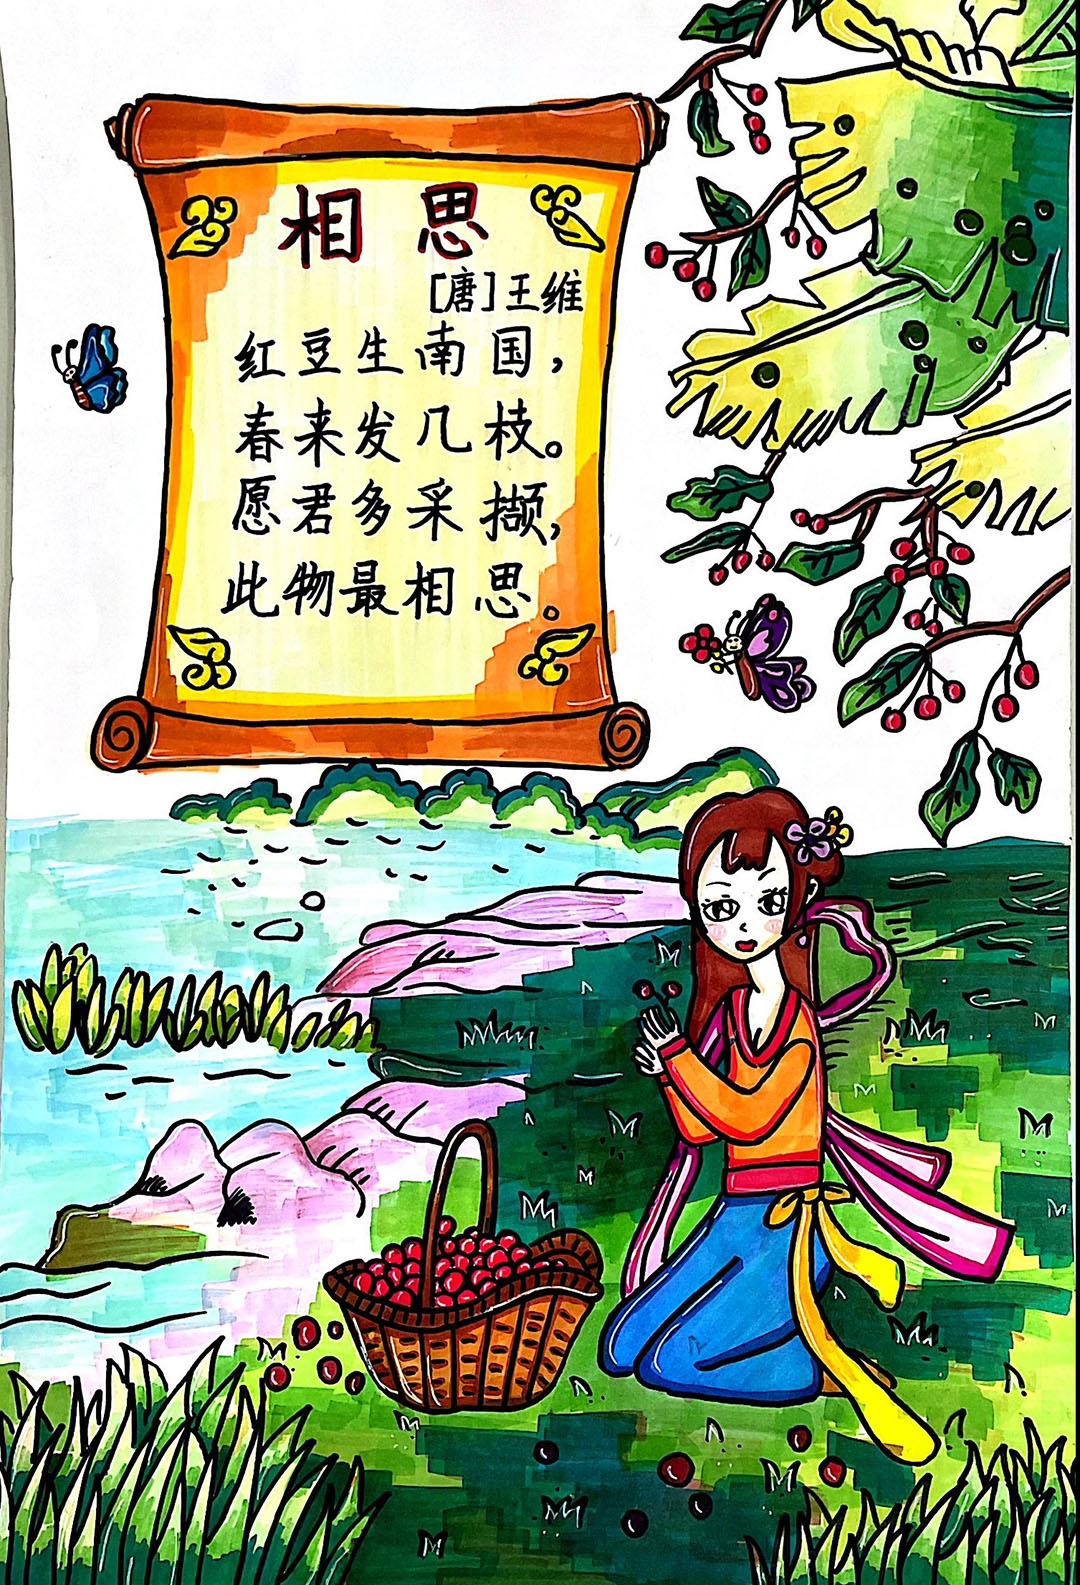 相思
[唐]王维
红豆生南国，
春来发几枝。
愿君多采撷，
此物最相思。